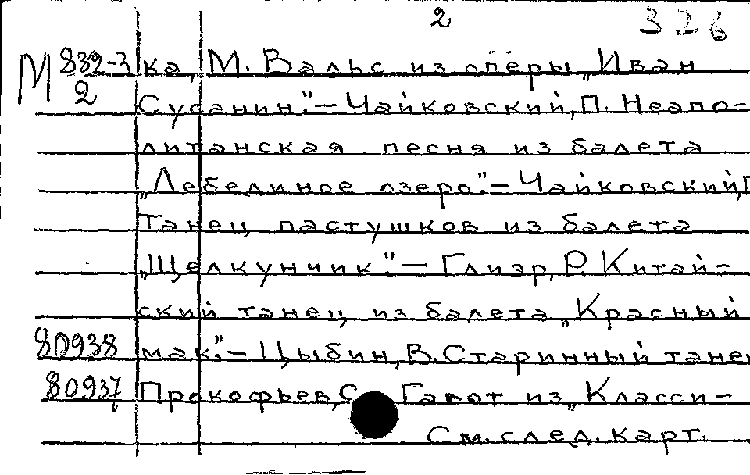 2 326
М 832-3 ка, М. Вальс из оперы „Иван
2 Сусанин".—Чайковский, П. Неапо-
литанская песня из балета
„Лебединое озеро".—Чайковский, П
Танец пастушков из балета
„Щелкунчик".—Глиэр, Р. Китай-
ский танец из балета „Красный
80938 мак".—Цыбин, В. Старинный танец
80937 Прокофьев, С. Гавот из „Класси-
См. след. карт.